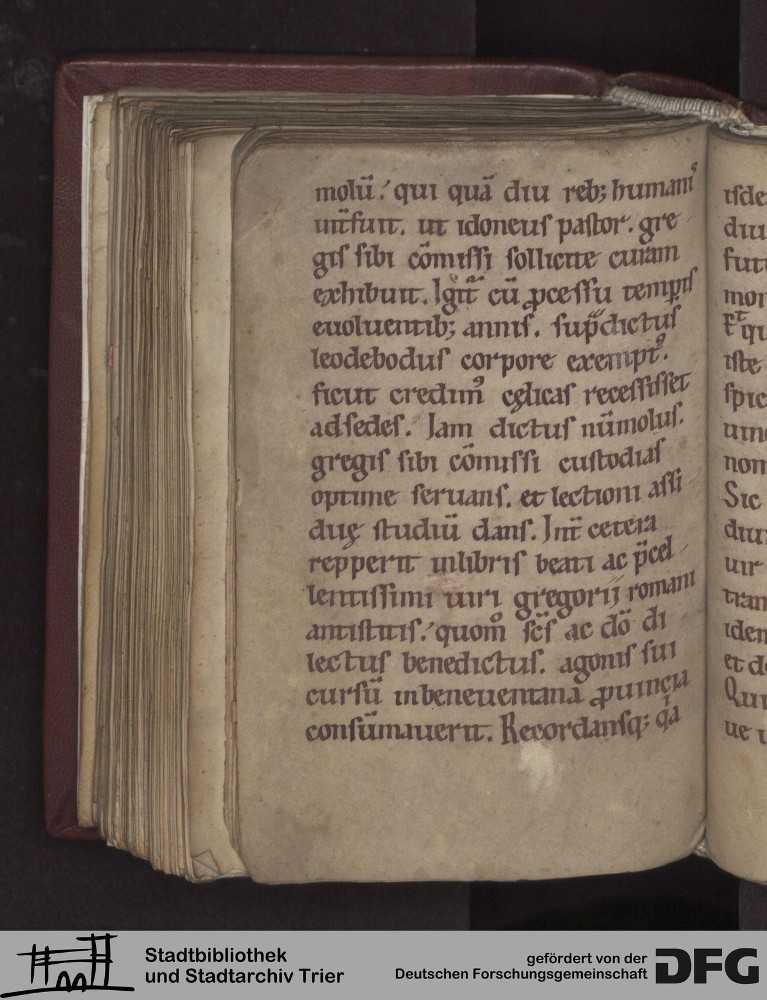 molū. qui quā diu reb; humanꝰ
int̄fuit. ut idoneus pastor. gre
gis sibi cōmissi sollicite curam
exhibuit. Igit̄ cū ꝓcessu temꝑis
euoluentib; annis. sup̄dictus
leodebodus corpore exemptꝰ.
sicut credimꝰ cęlicas recessisset
adsedes. Iam dictus nūmolus.
gregis sibi cōmissi custodias
optime seruans. et lectioni assi
duę studiū dans. Int̄ cetera
repperit inlibris beati ac p̄cel
lentissimi uiri gregorij romani
antistitis. quom̊ sc̄s ac dō di
lectus benedictus. agonis sui
cursū inbeneuentana ꝓuincia
consūmauerit. Recordansq; qa
isde
diu
futu
mor
iste
spic
uinc
nom
Sic
diu
uir
tran
iden
et de
Qui
ue
Stadtbibliothek
und Stadtarchiv Trier
gefördert von der
Deutschen Forschungsgemeinschaft
DFG